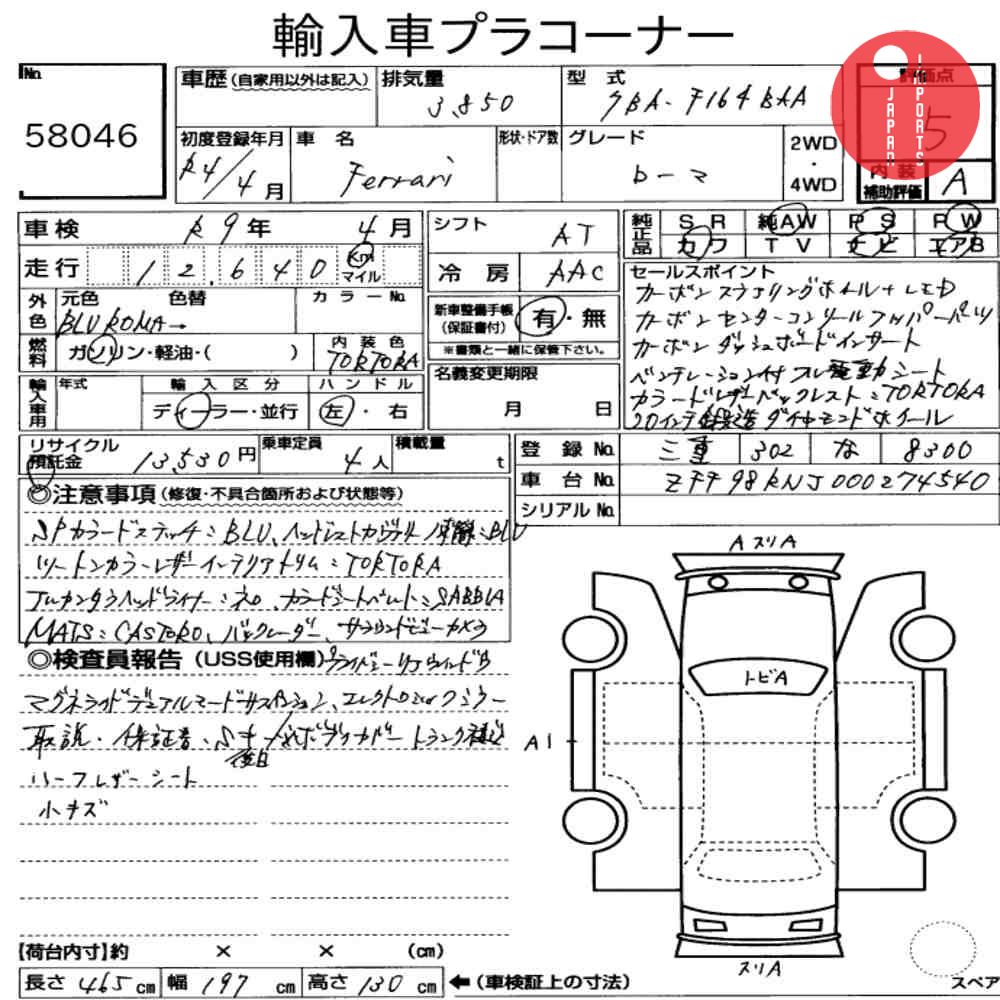 輸入車プラコーナー
No.
58046
車歴(自家用以外は記入)
排気量
3,850
型 式
7BA-F164BAA
評価点
5
JAPAN
IMPORTS
初度登録年月
R4/4月
車 名
Ferrari
形状・ドア数
グレード
ローマ
2WD
・
4WD
内 装
補助評価
A
車検
R9年 4月
走行
12,640
Km
マイル
外色
元色 色替
BLU ROMA→
カラーNo.
燃料
ガソリン・軽油・( )
内 装 色
TORTORA
輸入車用
年式
輸 入 区 分
ディーラー・並行
ハ ン ド ル
左・右
シフト
AT
冷 房
AAC
新車整備手帳
(保証書付)
有・無
※書類と一緒に保管下さい。
名義変更期限
月 日
純正品
SR 純AW PS PW
カワ TV ナビ エアB
セールスポイント
カーボンステアリングホイール+LED
カーボンセンターコンソールアッパーパーツ
カーボンダッシュボードインサート
ベンチレーション付フル電動シート
カラードレザーバックレスト:TORTORA
20インチ鍛造ダイヤモンドホイール
リサイクル
預託金
13,530円
乗車定員
4人
積載量
t
登 録 No.
三重 302 な 8300
車 台 No.
ZFF98RNJ000274540
シリアル No.
◎注意事項(修復・不具合箇所および状態等)
SPカラードステッチ:BLU、ヘッドレストカヴァリーノ刺繍:BLU
ツートンカラーレザーインテリアトリム:TORTORA
アルカンタラヘッドライナー:ネロ、カラードシートベルト:SABBIA
MATS:CASTORO、バックレーダー、サラウンドビューカメラ
◎検査員報告(USS使用欄)プライバシーリアウィンドウ
マグネライドデュアルモードサスペンション、エレクトロミックミラー
取説・保証書・Sキー/ボディカバー トランク積込
後日
ハーフレザーシート
小キズ
AスリA
トビA
A1
スリA
スペア
【荷台内寸】約 × × (cm)
長さ 465 cm 幅 197 cm 高さ 130 cm ←(車検証上の寸法)